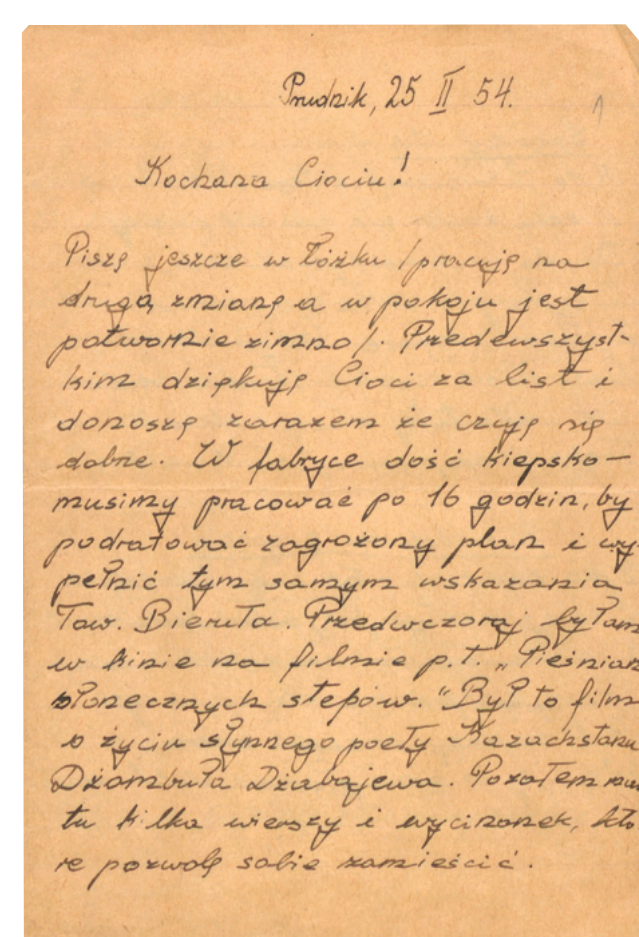 Prudnik, 25 II 54.
1
Kochana Ciociu!
Piszę jeszcze w łóżku /pracuję na
drugą zmianę a w pokoju jest
potwornie zimno/. Przedewszyst-
kim dziękuję Cioci za list i
donoszę zarazem że czuję się
dobrze. W fabryce dość kiepsko –
musimy pracować po 16 godzin, by
podratować zagrożony plan i wy-
pełnić tym samym wskazania
Tow. Bieruta. Przedwczoraj byłam
w kinie na filmie p.t. „Pieśniarz
słonecznych stepów." Był to film
o życiu słynnego poety Kazachstanu
Dżambuła Dżabajewa. Pozatem
tu kilka wierszy i wycinanek, któ
re pozwolę sobie zamieścić.